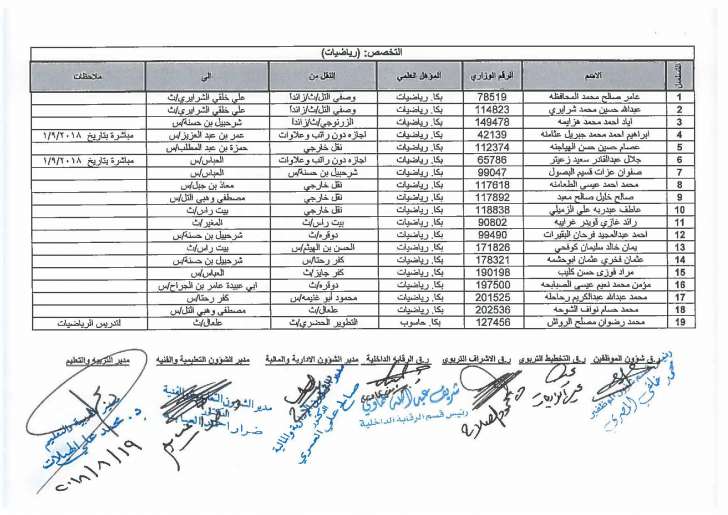 التخصص: (رياضيات)
التسلسل الاسم الرقم الوزاري المؤهل العلمي النقل من الى ملاحظات
1 عامر صالح محمد المحافظه 78519 بكا. رياضيات وصفي التل/ث/زائداً علي خلقي الشرايري/ث
2 عبدالله حسين محمد شرايري 114823 بكا. رياضيات وصفي التل/ث/زائداً علي خلقي الشرايري/ث
3 اياد احمد محمد هزايمه 149478 بكا. رياضيات الزرنوجي/ث/زائداً شرحبيل بن حسنة/س
4 ابراهيم احمد محمد جبريل عثامنه 42139 بكا. رياضيات اجازه دون راتب وعلاوات عمر بن عبد العزيز/س مباشرة بتاريخ ١/٩/٢٠١٨
5 عصام حسين حسن الهياجنه 112374 بكا. رياضيات نقل خارجي حمزة بن عبد المطلب/س
6 جلال عبدالقادر سعيد زعيتر 65786 بكا. رياضيات اجازه دون راتب وعلاوات العباس/س مباشرة بتاريخ ١/٩/٢٠١٨
7 صفوان عزات قسيم البصول 99047 بكا. رياضيات شرحبيل بن حسنة/س العباس/س
8 محمد احمد عيسى الطعامنه 117618 بكا. رياضيات نقل خارجي معاذ بن جبل/س
9 صالح خليل صالح معبد 117892 بكا. رياضيات نقل خارجي مصطفى وهبي التل/س
10 عاطف عبدربه علي الزميلي 118838 بكا. رياضيات نقل خارجي بيت راس/ث
11 رائد غازي قويدر غرايبه 90802 بكا. رياضيات بيت راس/ث المغير/ث
12 احمد عبدالمجيد فرحان البقيرات 99490 بكا. رياضيات دوقره/ث شرحبيل بن حسنة/س
13 يمان خالد سليمان كوفحي 171826 بكا. رياضيات الحسن بن الهيثم/س بيت راس/ث
14 عثمان فخري عثمان ابوحشمه 178321 بكا. رياضيات كفر رحتا/س شرحبيل بن حسنة/س
15 مراد فوزي حسن كليب 190198 بكا. رياضيات كفر جايز/ث العباس/س
16 مؤمن محمد نعيم عيسى الصبابحه 197500 بكا. رياضيات دوقره/ث ابي عبيدة عامر بن الجراح/س
17 محمد عبدالله عبدالكريم رحاحله 201525 بكا. رياضيات محمود أبو غنيمه/س كفر رحتا/س
18 محمد حسام نواف الشوحه 202536 بكا. رياضيات علعال/ث مصطفى وهبي التل/س
19 محمد رضوان مصلح الرواش 127456 بكا. حاسوب التطوير الحضري/ث علعال/ث لتدريس الرياضيات
ر.ق شؤون الموظفين ر.ق التخطيط التربوي ر.ق الاشراف التربوي ر.ق الرقابه الداخلية مدير الشؤون الادارية والمالية مدير الشؤون التعليمية والفنيه مدير التربيه والتعليم
رئيس قسم الرقابة الداخلية
مدير التربية والتعليم
د. محمد علي
٢٠١٨/٨/١٩